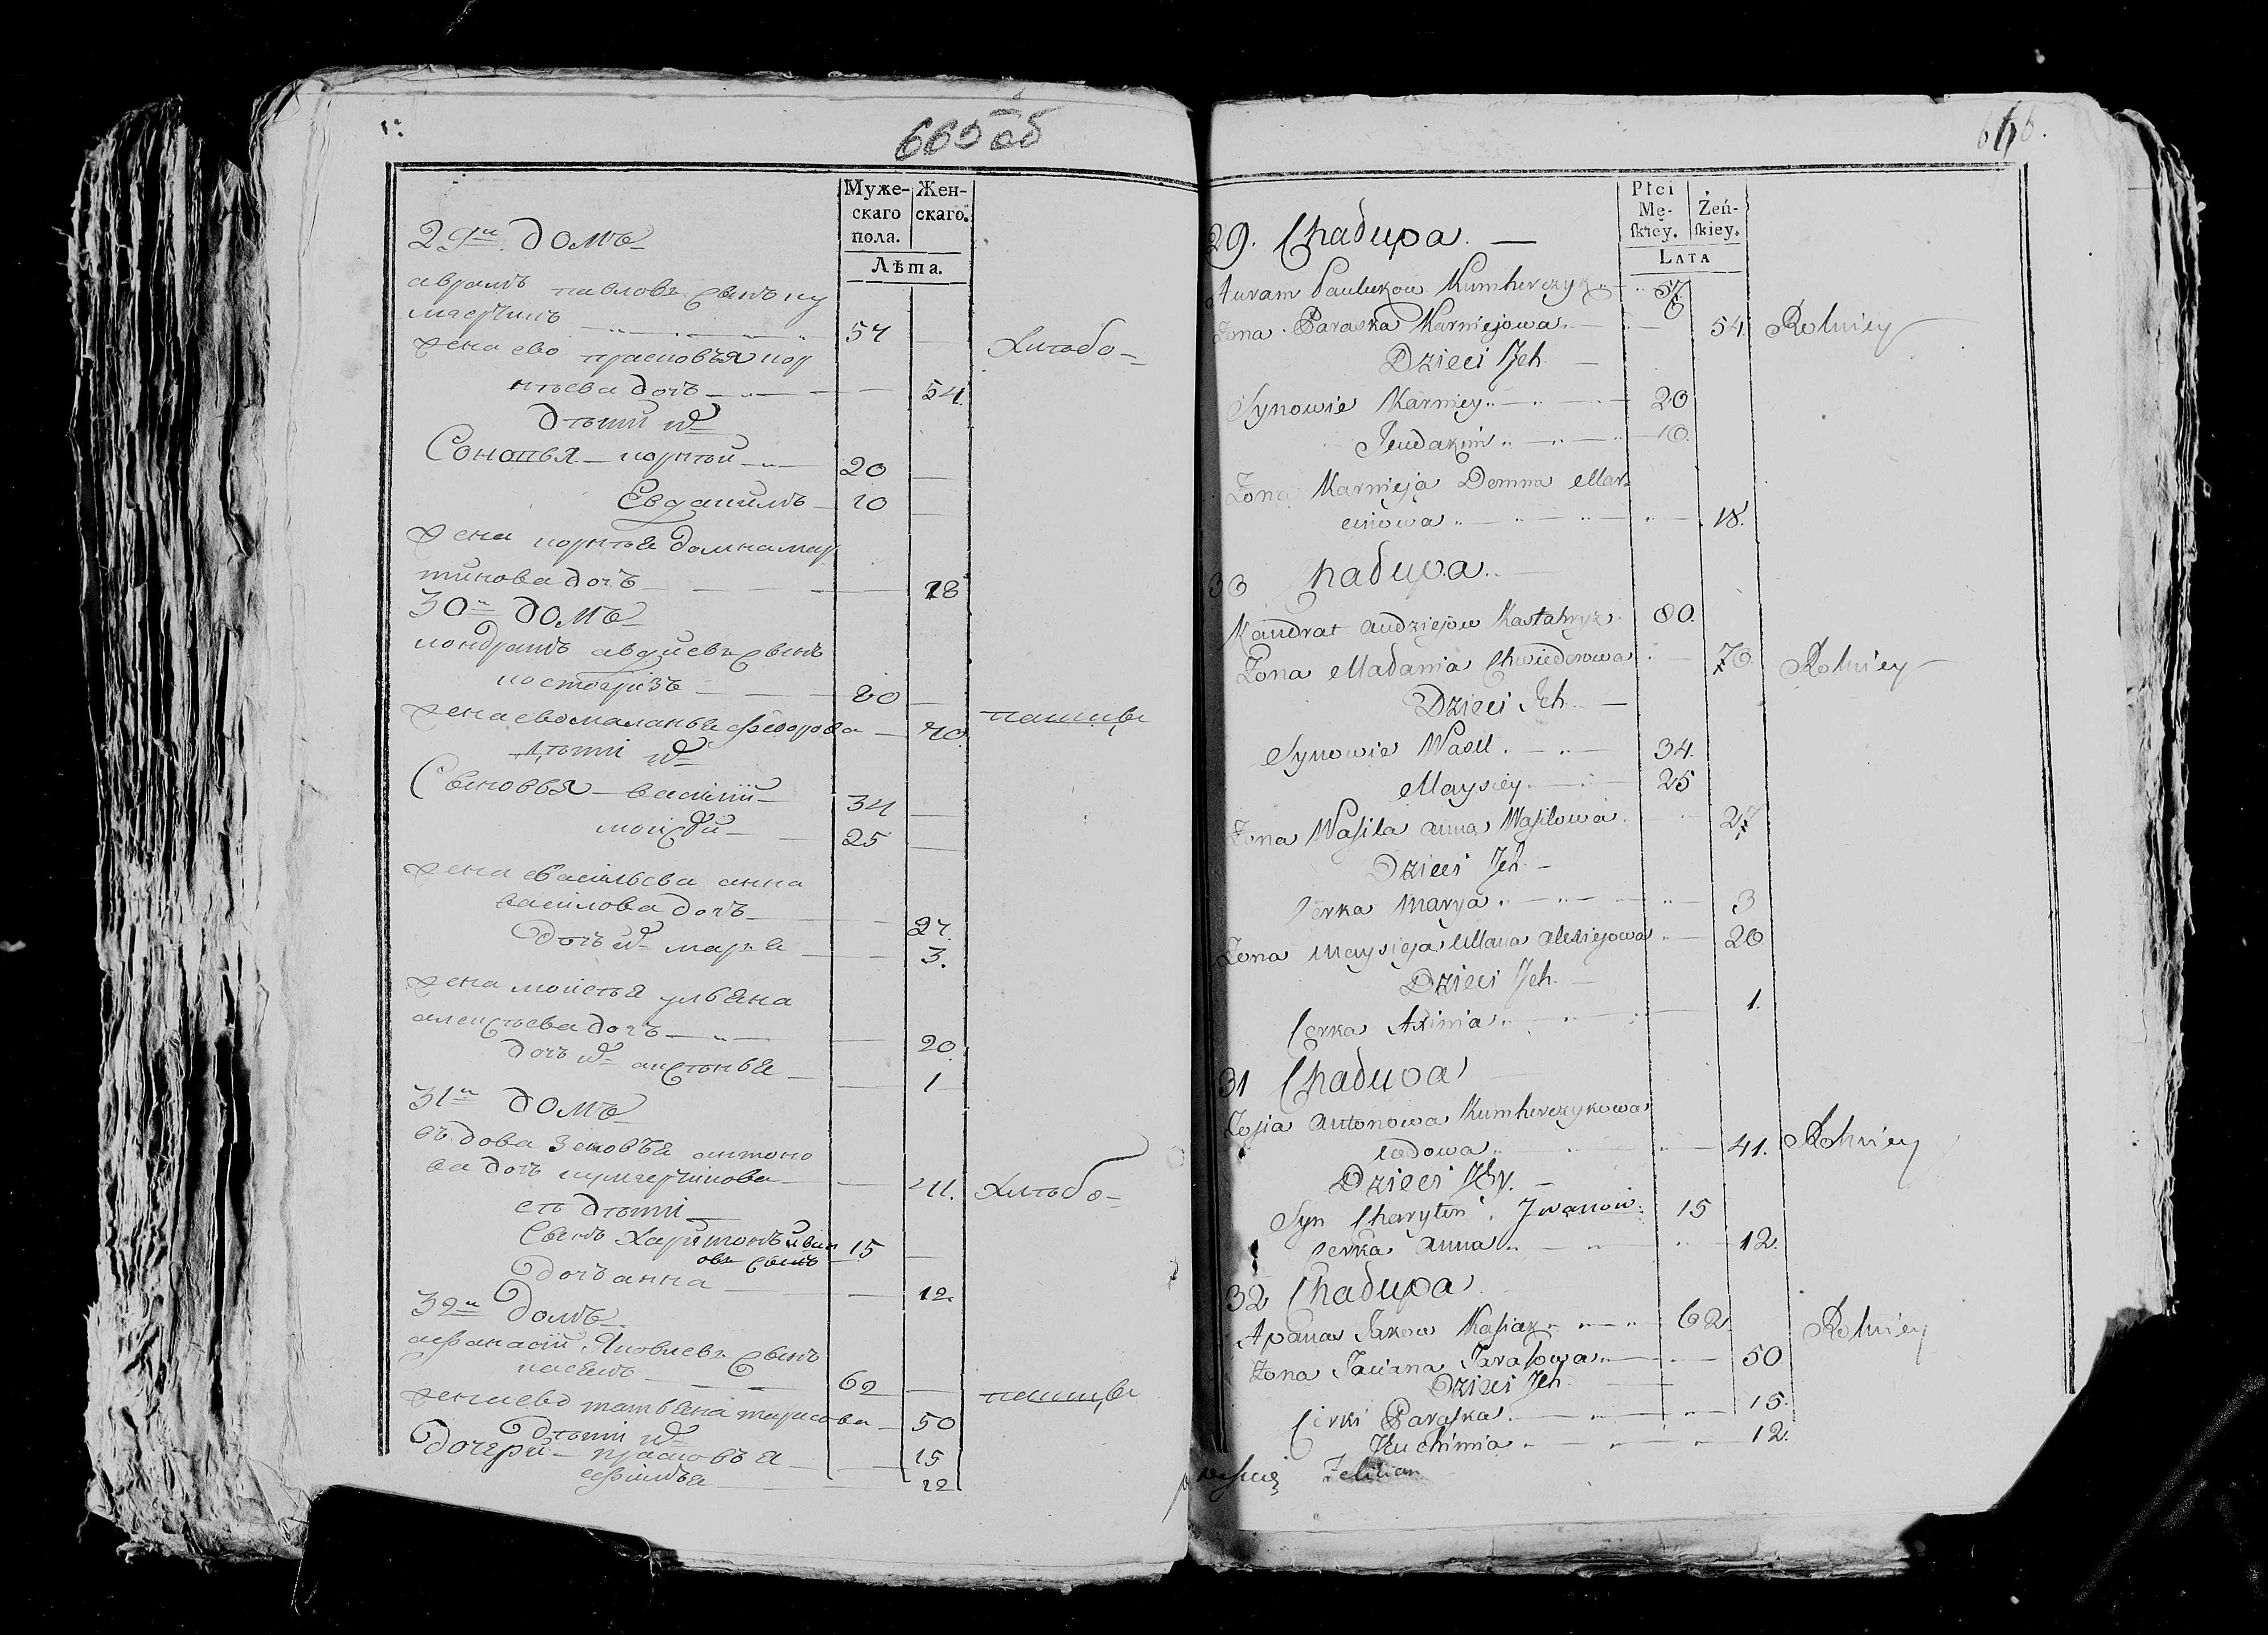 665 об
Муже-
скаго
пола.
Жен-
скаго.
Лѣта.
29й домъ
аврамъ павловъ сынъ ку
57
жена ево прасковья кор
Хлѣбо-
нѣева дочь 54.
дѣти их
Сыновья корнѣй 20
Евдакимъ 10
жена корнѣя домна мар
тинова дочь 18
30й домъ
кондратъ авдиевъ сынъ
80
жена ево маланья федорова 70 пашцы
дѣти их
Сыновья василий 34
моисей 25
жена васильева анна
василова дочь 27.
дочь их марья 3.
жена моисея ульяна
алексѣева дочь 20.
дочь их аксѣнья 1
31й домъ
вдова зеновѣя антоно
ва дочь кумгерчикова 41. Хлѣбо-
ее дѣти
сынъ Харитонъ иван 15
овъ сынъ
дочь анна 12
32й домъ
афанасий Яковлевъ сынъ
касякъ 62
жена ево татьяна тарасова 50 пашцы
дѣти их
дочери прасковья 15
ефимья 12
666.
Płci
Mę-
ſkiey.
Żeń-
ſkiey.
LATA
29. Chałupa.
Auram Paulukow Kumherczyk 57.
Żona Paraska Karniejowa. 54. Rolniey
Dzieci Jch
Synowie Karniey 20
Jeudakim 10.
Żona Karnieja Domna Mar
cinowa 18.
30 Chałupa.
Kandrat Audziejow Kastahryz 80.
Żona Małania Chwiedorowa 70. Rolniey
Dzieci Jch
Synowie Wasil 34.
Maysiey. 25
Żona Waſila anna Waſilowa 27
Dzieci Jch
Cerka Marya 3
Żona Maysieja Ullana Alexiejowa 20
Dzieci Jch.
Cerka Axinia 1.
31 Chałupa
Zosia Antonowa Kumherczykowa
wdowa 41. Rolniey
Dzieci Jey.
Syn Charyton Jwanow. 15
Cerka Anna 12.
32 Chałupa
Apanas Jakow Kasiak 62. Rolniey
Żona Taciana Taraſowa 50
Dzieci Jch
Cerki Paraſka 15.
Jeuchimia 12.